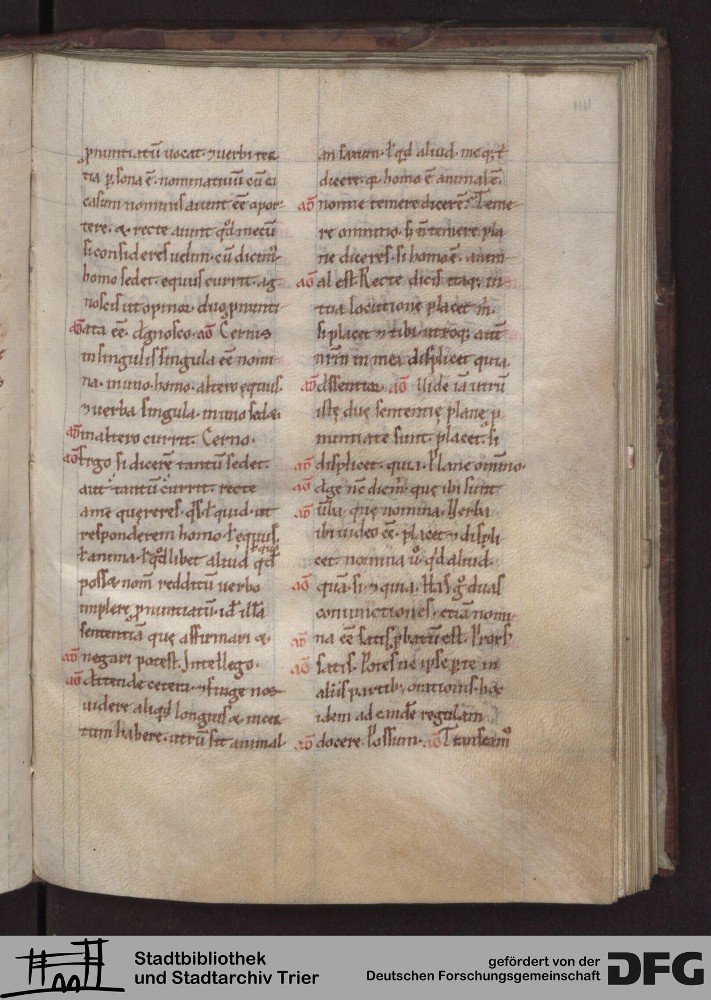 ꝓnuntiatũ uocat. ⁊ uerbi ter
tia ꝑsona ẽ. nominatiuũ cũ ei
casum nominis aiunt eẽ opor
tere. & recte aiunt qđ mecũ
si consideres uelim. cũ dicim̃
homo sedet. equus currit. ag
noscis ut opinor duo ꝓnunti
ata eẽ. Agnosco. Cernis
in singulis singula eẽ nomi
na. in uno. homo. altero ęquus.
⁊ uerba singula. in uno sedet.
in altero currit. Cerno.
Ergo si dicerẽ tantũ sedet.
aut tantũ currit. recte
a me quęreres. qs̃ ł quid. ut
responderem homo. ł ęquus.
ł anima. ł qđlibet aliud. qđ
possæ nom̃ redditũ uerbo
implere ꝓnuntiatũ. id ẽ illã
sententiã quę affirmari &
negari potest. Intellego.
Attende cetera. ⁊ finge nos
uidere aliqđ longius & incer
tum habere. utrũ sit animal
an saxum. ł qđ aliud. meqꝫ t̃
dicere. quia homo ẽ animal ẽ.
nonne temere dicerẽ. Teme
re omnino. sꝫ ñ temere pla
ne diceres. si homo ẽ. anim
al est. Recte dicis itaqꝫ in
tua locutione placet m̃.
si placet ⁊ tibi. utroqꝫ aut̃
nr̃m in mea displicet quia.
Assentior. Uide iã utrũ
istę duę sententię planę ꝓ
nuntiate sunt. placet si
displicet. quia. Plane om̃no.
Age nc̃ dicm̃ quę ibi sunt
ũba. quę nomina. Uerba
ibi uideo eẽ. placet ⁊ displi
cet. nomina ũ. qđ aliud
quã. si. ⁊ quia. Has gͦ duas
coniunctiones. etiã nomi
na eẽ satis ꝓbatũ est. Prors̃
satis. Potes ne ipse ꝑ te in
aliis partibꝫ orationis hoc
idem ad eandẽ regulam
docere. Possum. Transeam᷒
Stadtbibliothek
und Stadtarchiv Trier
gefördert von der
Deutschen Forschungsgemeinschaft
DFG